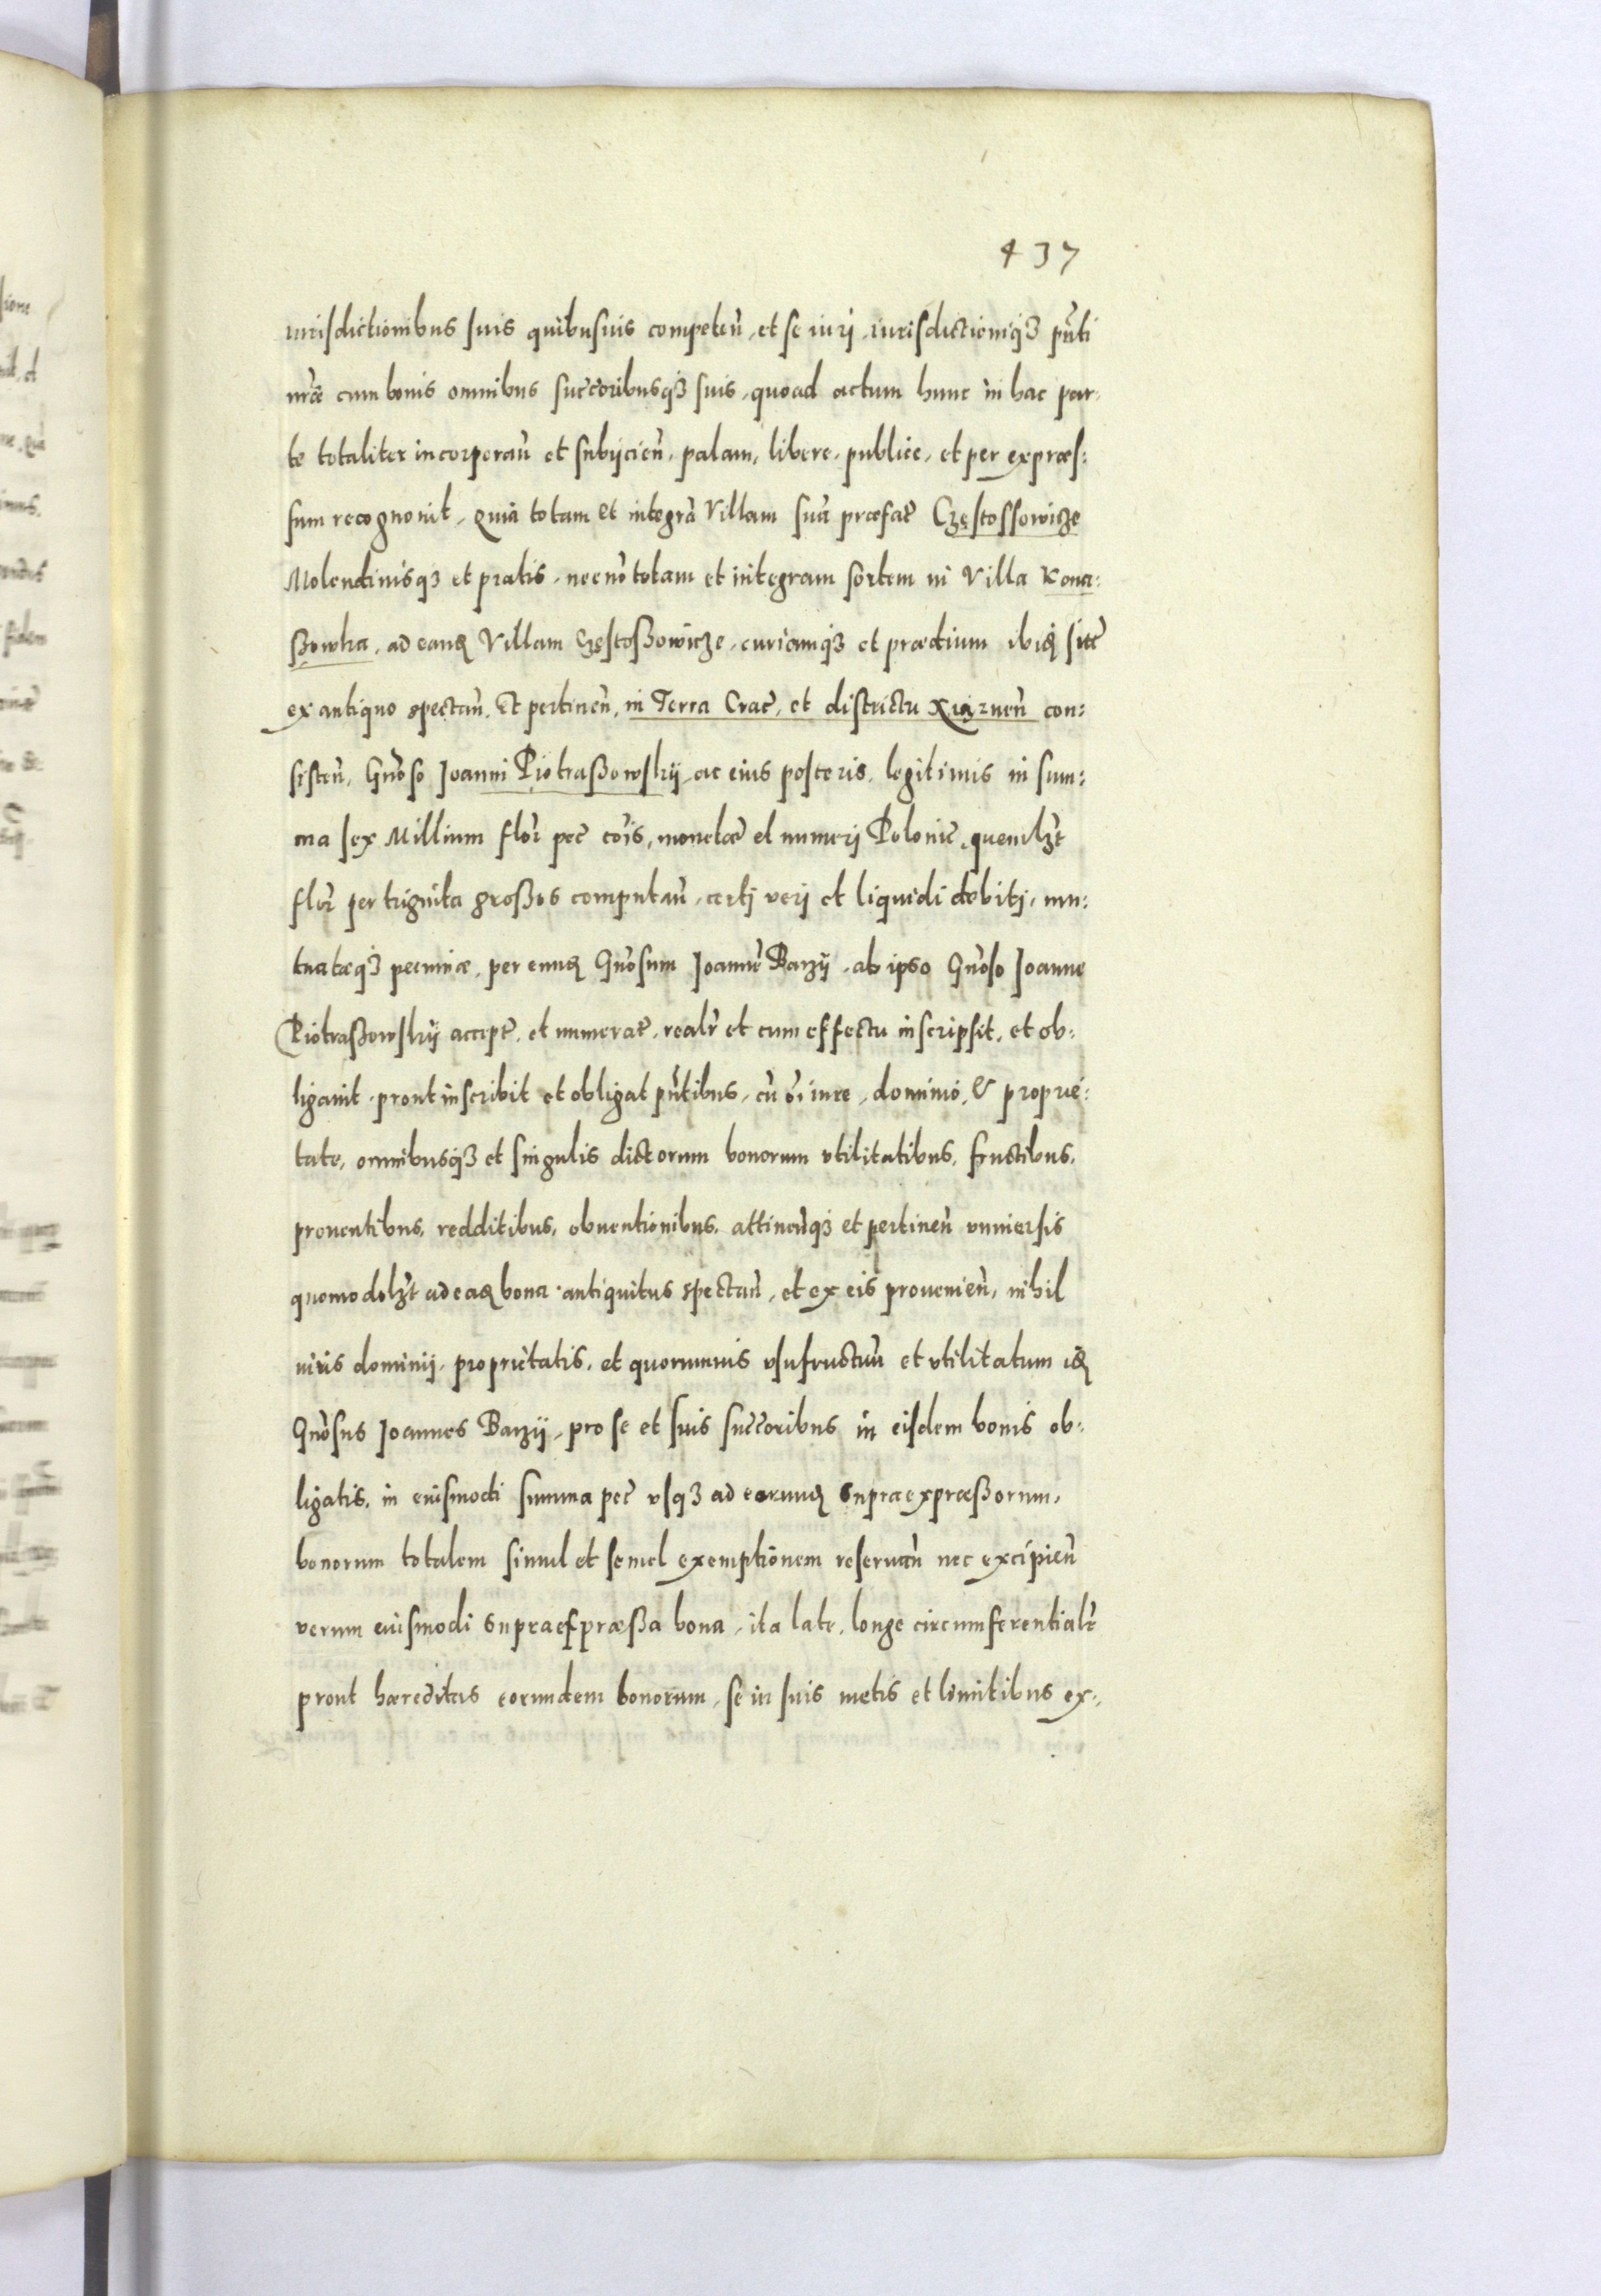 437
iurisdictionibus suis quibusuis competen̄, et se iuri, iurisdictioniq3 pn̄ti
nr̄æ cum bonis omnibus succ̄oribusq3 suis, quoad actum hunc in hac par-
te totaliter incorporan̄ et subijcien̄, palam, libere, publice, et per expræs:
sum recognouit, Quia totam et integrā Villam suā præfat̄ Częstossowicze
Molendinisq3 et pratis, necnō totam et integram sortem in Villa Kona:
ßowka, ad eand̄ Villam Częstoßowicze, curiamq3 et prædium ibid̄ sitt̄
ex antiquo spectan̄, Et pertinen̄, in Terra Crac̄, et districtu Xiąznen̄ con:
sisten̄, Gn̄oso Joanni Piotraßowskij, ac eius posteris legitimis in sum:
ma sex Millium flor̄ pec̄ cōis, monetæ et numeri Polonic̄, quemlz̄t
flor̄ per triginta großos computan̄, certi veri et liquidi debiti, mu:
tuatæq3 pecuniæ, per eund̄ Gn̄osum Joannē Barzij, ab ipso Gn̄oso Joanne
Piotraßowskij accept̄, et numerat̄, realr̄ et cum effectu inscripsit, et ob:
ligauit, prout inscribit et obligat pn̄tibus, cū ōi iure, dominio, & proprie:
tate, omnibusq3 et singulis dictorum bonorum vtilitatibus, fructibus,
prouentibus, redditibus, obuentionibus, attinen̄q3 et pertinen̄ vniuersis
quomodolz̄t ad ead̄ bona antiquitus spectan̄, et ex eis prouenien̄, nihil
iuris dominij, proprietatis, et quorumuis vsufructuū et vtilitatum id̄
Gn̄osus Joannes Barzij, pro se et suis succ̄oribus in eisdem bonis ob:
ligatis, in eiusmodi summa pec̄ vsq3 ad eorund̄ supraexpræßorum,
bonorum totalem simul et semel exemptionem reseruan̄ nec excipien̄
verum eiusmodi supraexpræßa bona, ita late, longe circumferentialr̄
prout hæreditas eorundem bonorum, se in suis metis et limitibus ex: